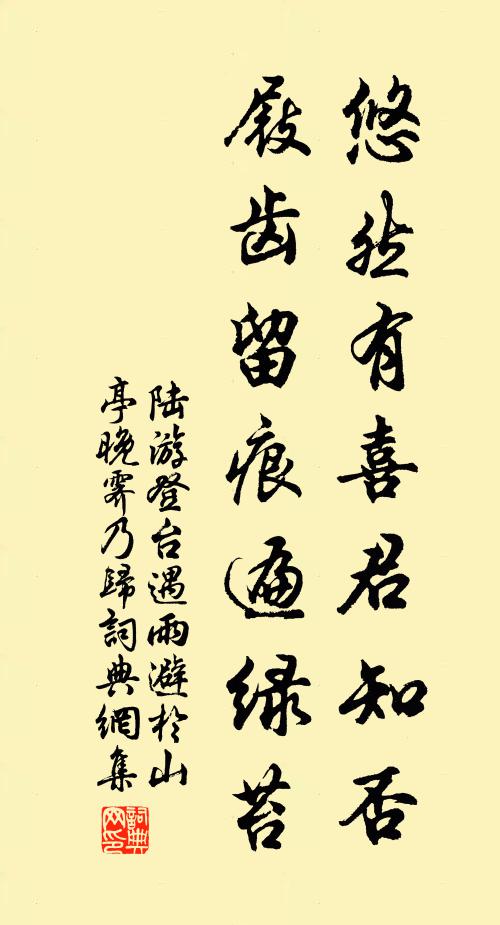 悠然有喜君知否
屐齿留痕遍绿苔
陆游登台遇雨避於山
亭晚霁乃歸詞典網集
詞典
网印